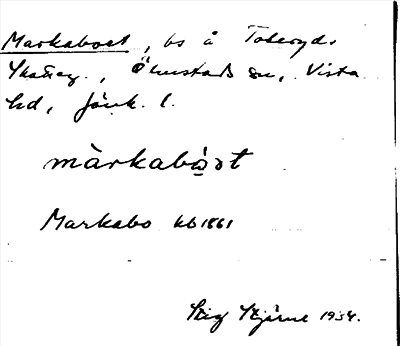 Markaboet, bs å Toleryds
Skatteg., Ölmstads sn, Vista
hd, Jönk. l.
màrkabò̱ət
Markabo kb 1861
Stig Stjärne 1934.